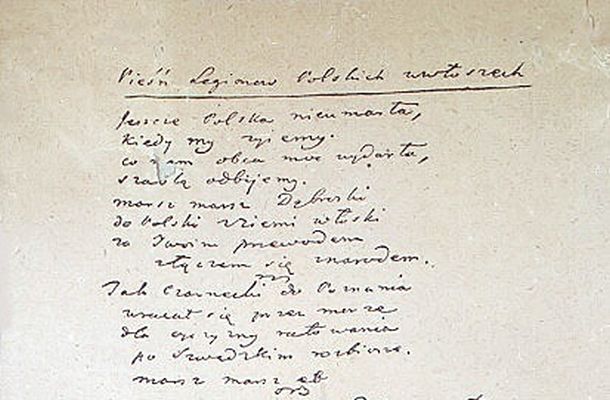 Pieśń Legionow Polskich wewłoszech
Jeszcze Polska nieumarła,
kiedy my żyiemy.
co nam obca moc wydarła,
szablą odbijemy.
marsz marsz Dąbroski
do Polski zziemi włoski
za Twoim przewodem
złączem się znarodem.
Jak Czarnecki do Poznania
wracał się przez morze
dla oyczyzny ratowania
po Szwedzkim rozbiorze.
marsz marsz